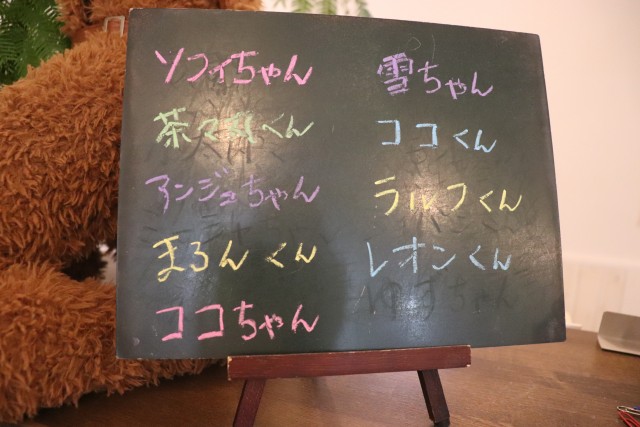 ソフィちゃん
茶々丸くん
アンジュちゃん
まろんくん
ココちゃん
雪ちゃん
ココくん
ラルフくん
レオンくん
ゆずちゃん